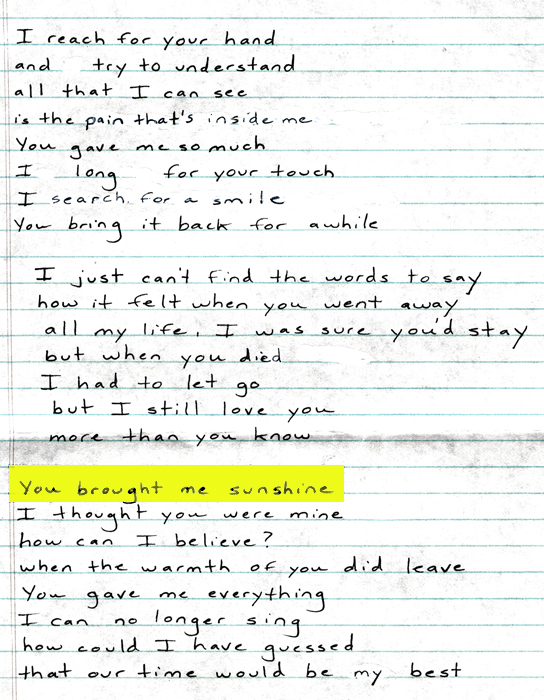 I reach for your hand
and try to understand
all that I can see
is the pain that's inside me
You gave me so much
I long for your touch
I search for a smile
You bring it back for awhile
I just can't find the words to say
how it felt when you went away
all my life, I was sure you'd stay
but when you died
I had to let go
but I still love you
more than you know
You brought me sunshine
I thought you were mine
how can I believe?
when the warmth of you did leave
You gave me everything
I can no longer sing
how could I have guessed
that our time would be my best